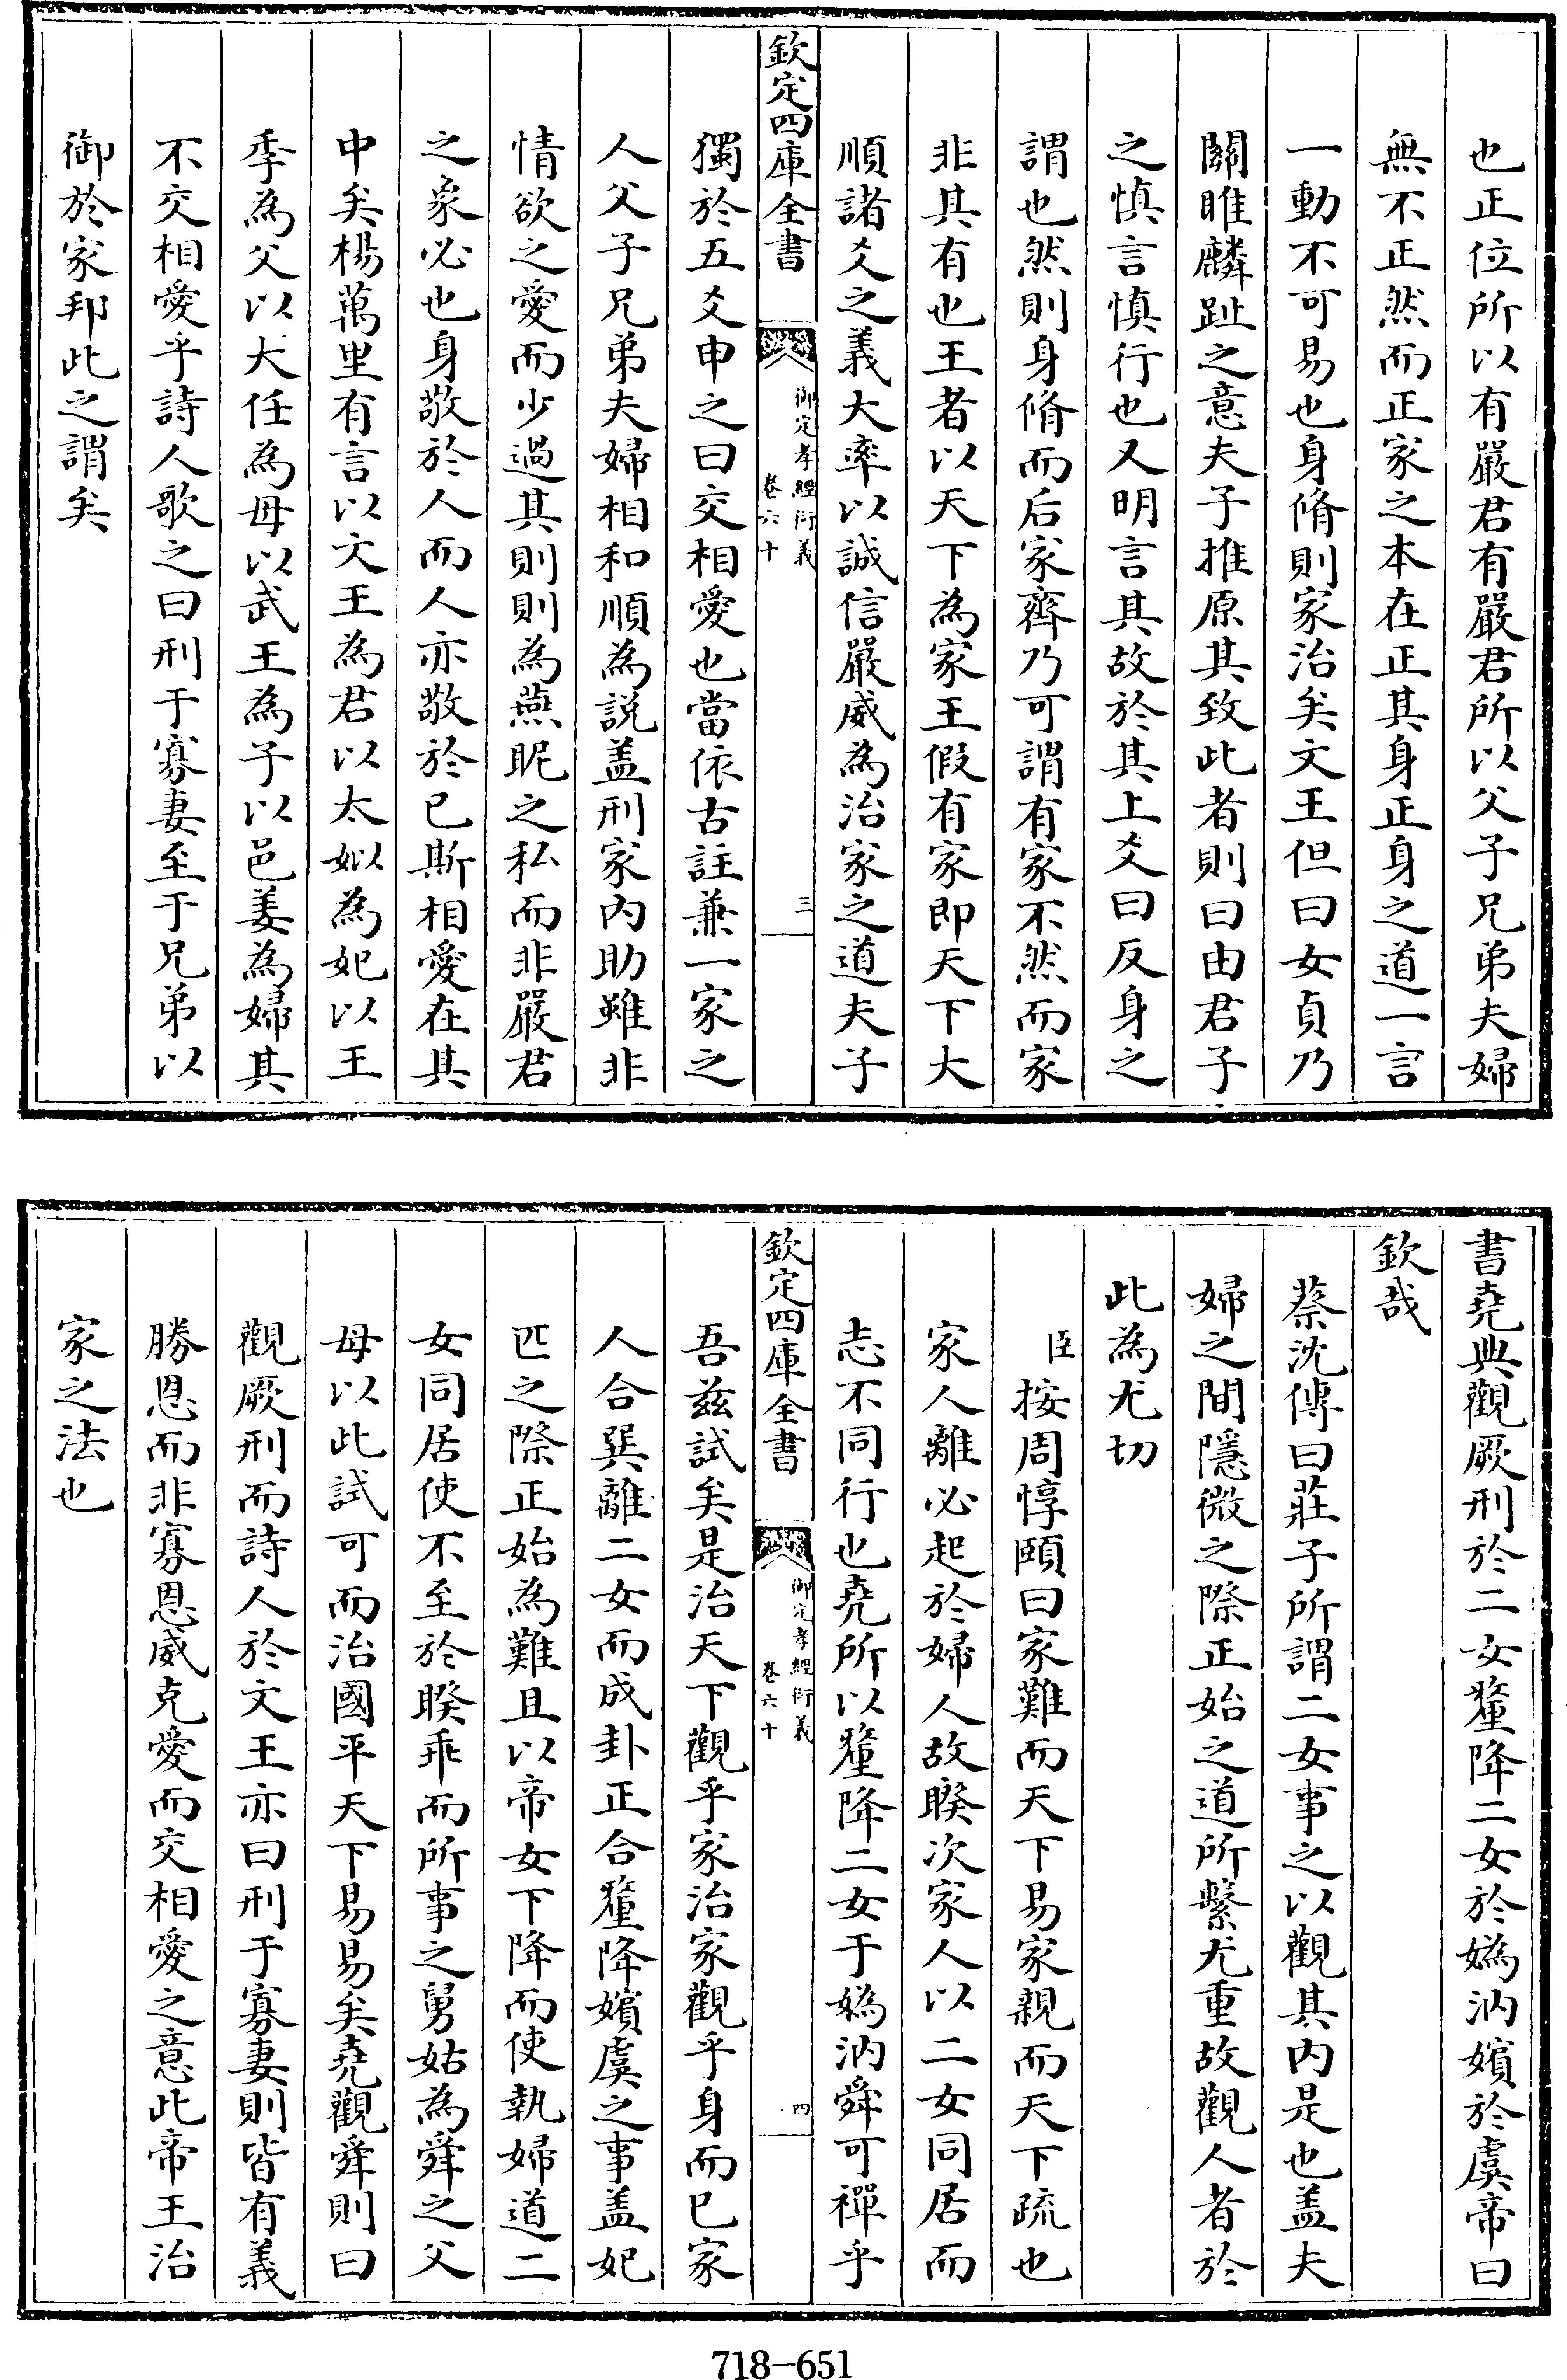 也正位所以有嚴君有嚴君所以父子兄弟夫婦
無不正然而正家之本在正其身正身之道一言
一動不可易也身脩則家治矣文王但曰女貞乃
關睢麟趾之意夫子推原其致此者則曰由君子
之慎言慎行也又明言其故於其上爻曰反身之
謂也然則身脩而后家齊乃可謂有家不然而家
非其有也王者以天下為家王假有家即天下大
順諸爻之義大率以誠信嚴威為治家之道夫子
欽定四庫全書
御定孝經衍義
卷六十
三
獨於五爻申之曰交相愛也當依古註兼一家之
人父子兄弟夫婦相和順為説盖刑家內助雖非
情欲之愛而少過其則則為燕昵之私而非嚴君
之象必也身敬於人而人亦敬於已斯相愛在其
中矣楊萬里有言以文王為君以太姒為妃以王
季為父以大任為母以武王為子以邑姜為婦其
不交相愛乎詩人歌之曰刑于寡妻至于兄弟以
御於家邦此之謂矣
書堯典觀厥刑於二女釐降二女於媯汭嬪於虞帝曰
欽哉
蔡沈傳曰莊子所謂二女事之以觀其內是也盖夫
婦之間隱微之際正始之道所繫尤重故觀人者於
此為尤切
臣按周惇頤曰家難而天下易家親而天下疏也
家人離必起於婦人故睽次家人以二女同居而
志不同行也堯所以釐降二女于媯汭舜可禪乎
欽定四庫全書
御定孝經衍義
卷六十
四
吾兹試矣是治天下觀乎家治家觀乎身而已家
人合巽離二女而成卦正合釐降嬪虞之事盖妃
匹之際正始為難且以帝女下降而使執婦道二
女同居使不至於睽乖而所事之舅姑為舜之父
母以此試可而治國平天下易易矣堯觀舜則曰
觀厥刑而詩人於文王亦曰刑于寡妻則皆有義
勝恩而非寡恩威克愛而交相愛之意此帝王治
家之法也
718-651